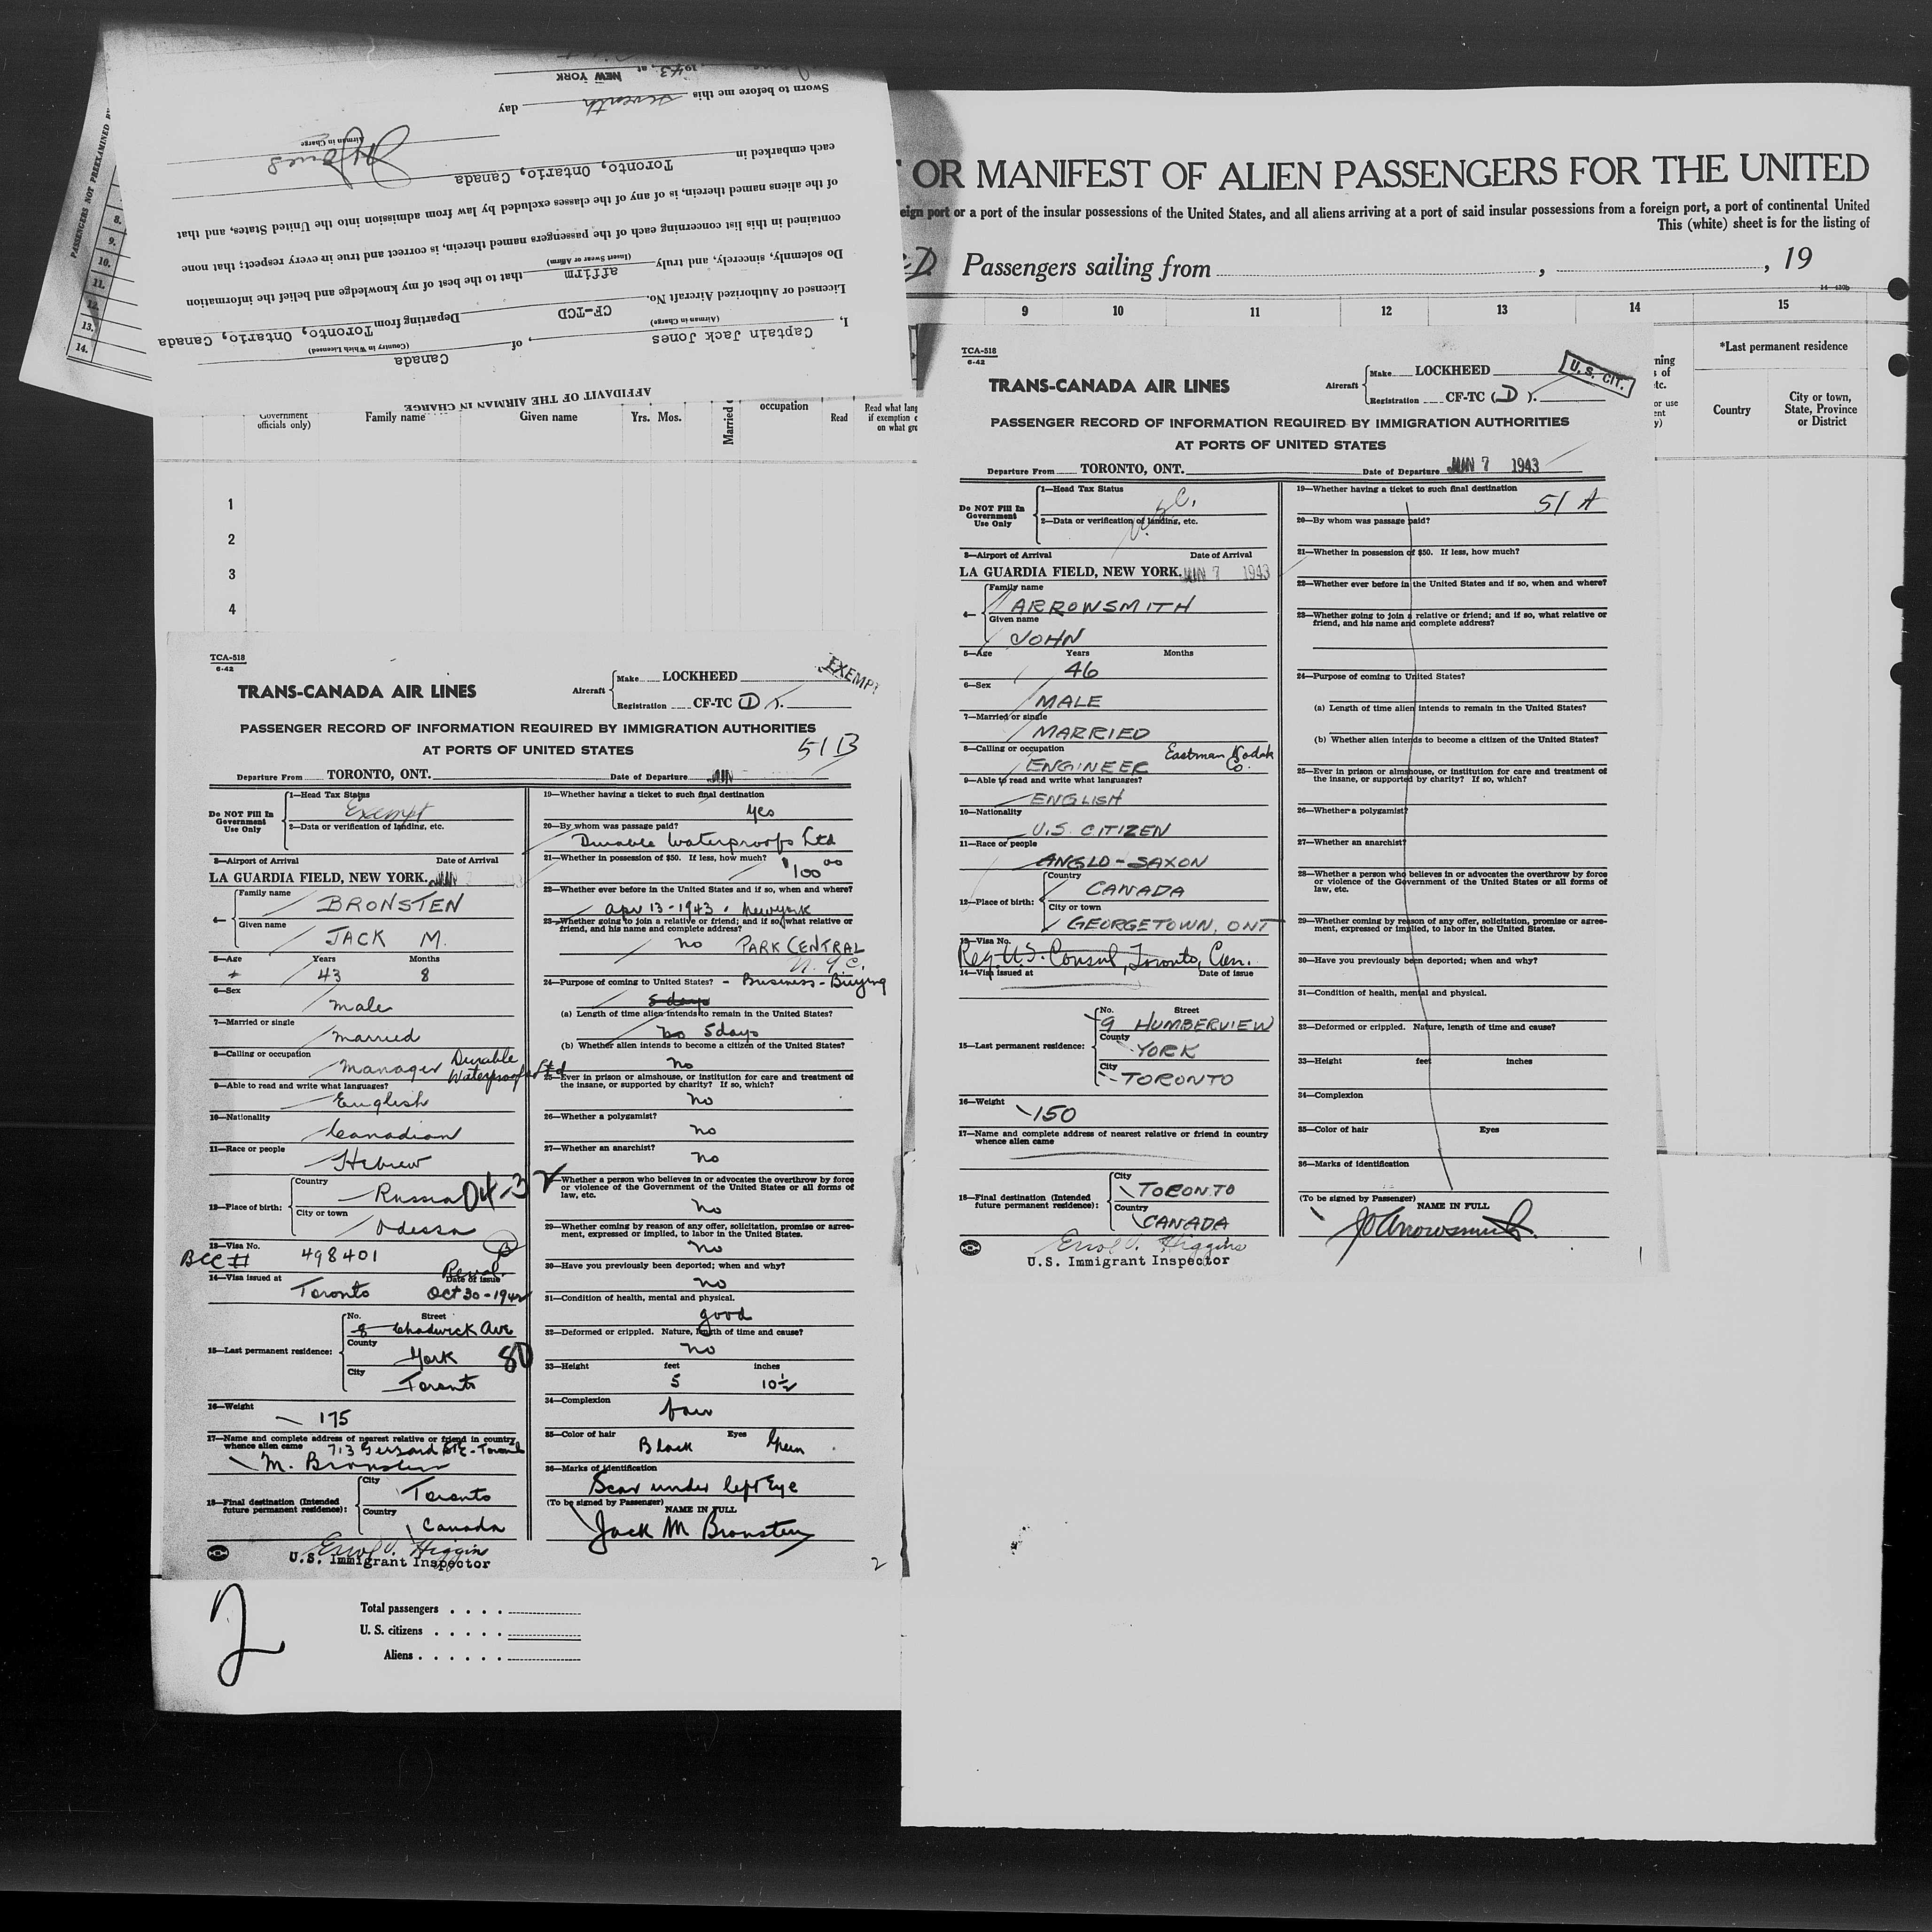 AFFIDAVIT OF THE AIRMAN IN CHARGE
I, Captain Jack Jones, of Canada
(Airman in Charge) (Country in Which Licensed)
Licensed or Authorized Aircraft No. CF-TCD Departing from Toronto, Ontario, Canada
Do solemnly, sincerely, and truly affirm that to the best of my knowledge and belief the information
(Insert Swear or Affirm)
contained in this list concerning each of the passengers named therein, is correct and true in every respect; that none
of the aliens named therein, is of any of the classes excluded by law from admission into the United States, and that
each embarked in Toronto, Ontario, Canada
Jones
Airman in Charge
Sworn to before me this seventh day
1943, at NEW YORK
PASSENGERS NOT PREEXAMINED
8.
9.
10.
11.
12.
13.
14.
OR MANIFEST OF ALIEN PASSENGERS FOR THE UNITED
eign port or a port of the insular possessions of the United States, and all aliens arriving at a port of said insular possessions from a foreign port, a port of continental United
This (white) sheet is for the listing of
Passengers sailing from , , 19
9 10 11 12 13 14 15
*Last permanent residence
Country
City or town, State, Province or District
Government officials only)
Family name Given name Yrs. Mos. Married occupation Read
Read what lang
if exemption c
on what gro
1
2
3
4
TCA-518
6-42
TRANS-CANADA AIR LINES
Aircraft Make LOCKHEED
Registration CF-TC (D).
EXEMPT
PASSENGER RECORD OF INFORMATION REQUIRED BY IMMIGRATION AUTHORITIES
AT PORTS OF UNITED STATES
51 B
Departure From TORONTO, ONT. Date of Departure JUN
Do NOT Fill In Government Use Only
1—Head Tax Status
Exempt
2—Data or verification of landing, etc.
3—Airport of Arrival Date of Arrival
LA GUARDIA FIELD, NEW YORK. JUN 7
4— Family name
BRONSTEN
Given name
JACK M.
5—Age Years Months
43 8
6—Sex
male
7—Married or single
married
8—Calling or occupation
manager Durable Waterproofs Ltd
9—Able to read and write what languages?
English
10—Nationality
Canadian
11—Race or people
Hebrew
12—Place of birth: Country
Russia
City or town
Odessa
13—Visa No.
BCC # 498401
14—Visa issued at Date of issue
Toronto Oct 30-1942
15—Last permanent residence: No. Street
8 Chadwick Ave
County
York 80
City
Toronto
16—Weight
175
17—Name and complete address of nearest relative or friend in country whence alien came
713 Gerrard St E - Toronto
M. Bronsten
18—Final destination (Intended future permanent residence): City
Toronto
Country
Canada
Errol J. Higgins
U.S. Immigrant Inspector
19—Whether having a ticket to such final destination
yes
20—By whom was passage paid?
Durable Waterproofs Ltd
21—Whether in possession of $50. If less, how much?
$100 00
22—Whether ever before in the United States and if so, when and where?
apr 13-1943. Newyork
23—Whether going to join a relative or friend; and if so, what relative or friend, and his name and complete address?
no PARK CENTRAL
N.Y.C.
24—Purpose of coming to United States? - Business - Buying
5 days
(a) Length of time alien intends to remain in the United States?
no 5 days
(b) Whether alien intends to become a citizen of the United States?
no
25—Ever in prison or almshouse, or institution for care and treatment of the insane, or supported by charity? If so, which?
no
26—Whether a polygamist?
no
27—Whether an anarchist?
no
28—Whether a person who believes in or advocates the overthrow by force or violence of the Government of the United States or all forms of law, etc.
no
29—Whether coming by reason of any offer, solicitation, promise or agreement, expressed or implied, to labor in the United States.
no
30—Have you previously been deported; when and why?
no
31—Condition of health, mental and physical.
good
32—Deformed or crippled. Nature, length of time and cause?
no
33—Height feet inches
5 10½
34—Complexion
fair
35—Color of hair Eyes
Black Green
36—Marks of identification
Scar under left Eye
(To be signed by Passenger) NAME IN FULL
Jack M Bronsten
2
2
Total passengers
U. S. citizens
Aliens
TCA-518
6-42
TRANS-CANADA AIR LINES
Aircraft Make LOCKHEED
Registration CF-TC (D).
U.S. CIT.
PASSENGER RECORD OF INFORMATION REQUIRED BY IMMIGRATION AUTHORITIES
AT PORTS OF UNITED STATES
Departure From TORONTO, ONT. Date of Departure JUN 7 1943
Do NOT Fill In Government Use Only
1—Head Tax Status
U.S.C.
2—Data or verification of landing, etc.
3—Airport of Arrival Date of Arrival
LA GUARDIA FIELD, NEW YORK. JUN 7 1943
4— Family name
ARROWSMITH
Given name
JOHN
5—Age Years Months
46
6—Sex
MALE
7—Married or single
MARRIED
8—Calling or occupation
ENGINEER Eastman Kodak Co.
9—Able to read and write what languages?
ENGLISH
10—Nationality
U.S. CITIZEN
11—Race or people
ANGLO-SAXON
12—Place of birth: Country
CANADA
City or town
GEORGETOWN, ONT
13—Visa No.
Reg. U.S. Consul, Toronto, Can.
14—Visa issued at Date of issue
15—Last permanent residence: No. Street
9 HUMBERVIEW
County
YORK
City
TORONTO
16—Weight
150
17—Name and complete address of nearest relative or friend in country whence alien came
18—Final destination (Intended future permanent residence): City
TORONTO
Country
CANADA
Errol J. Higgins
U.S. Immigrant Inspector
19—Whether having a ticket to such final destination
51 A
20—By whom was passage paid?
21—Whether in possession of $50. If less, how much?
22—Whether ever before in the United States and if so, when and where?
23—Whether going to join a relative or friend; and if so, what relative or friend, and his name and complete address?
24—Purpose of coming to United States?
(a) Length of time alien intends to remain in the United States?
(b) Whether alien intends to become a citizen of the United States?
25—Ever in prison or almshouse, or institution for care and treatment of the insane, or supported by charity? If so, which?
26—Whether a polygamist?
27—Whether an anarchist?
28—Whether a person who believes in or advocates the overthrow by force or violence of the Government of the United States or all forms of law, etc.
29—Whether coming by reason of any offer, solicitation, promise or agreement, expressed or implied, to labor in the United States.
30—Have you previously been deported; when and why?
31—Condition of health, mental and physical.
32—Deformed or crippled. Nature, length of time and cause?
33—Height feet inches
34—Complexion
35—Color of hair Eyes
36—Marks of identification
(To be signed by Passenger) NAME IN FULL
JO Arrowsmith